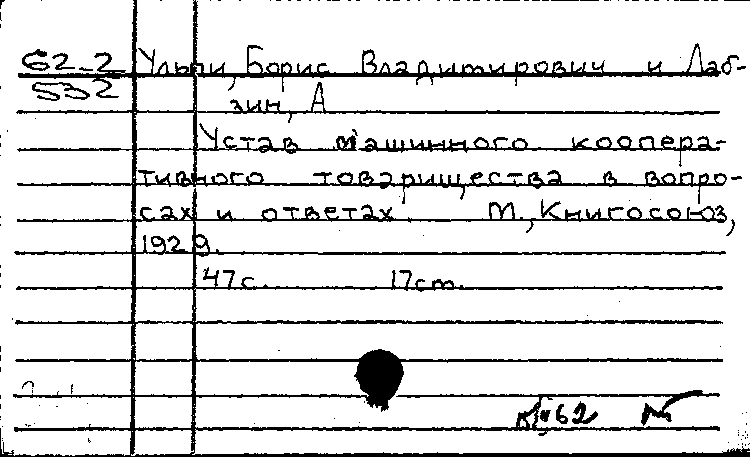 62-2
532
Ульпи, Борис Владимирович и Лаб-
зин, А
Устав машинного коопера-
тивного товарищества в вопро-
сах и ответах. М., Книгосоюз,
1929.
47с. 17ст.
62